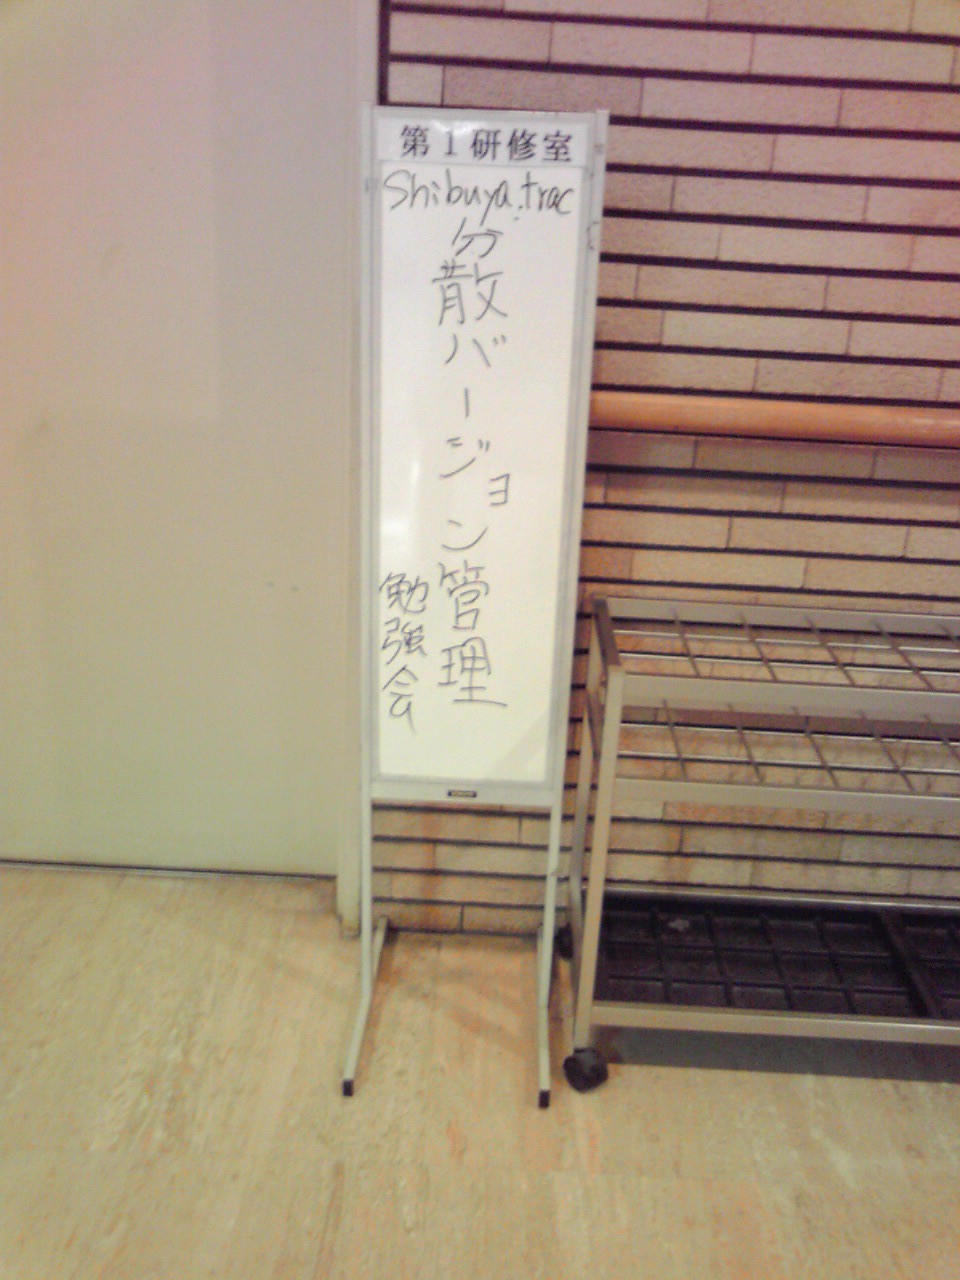 第1研修室
Shibuya.trac
分散バージョン管理
勉強会